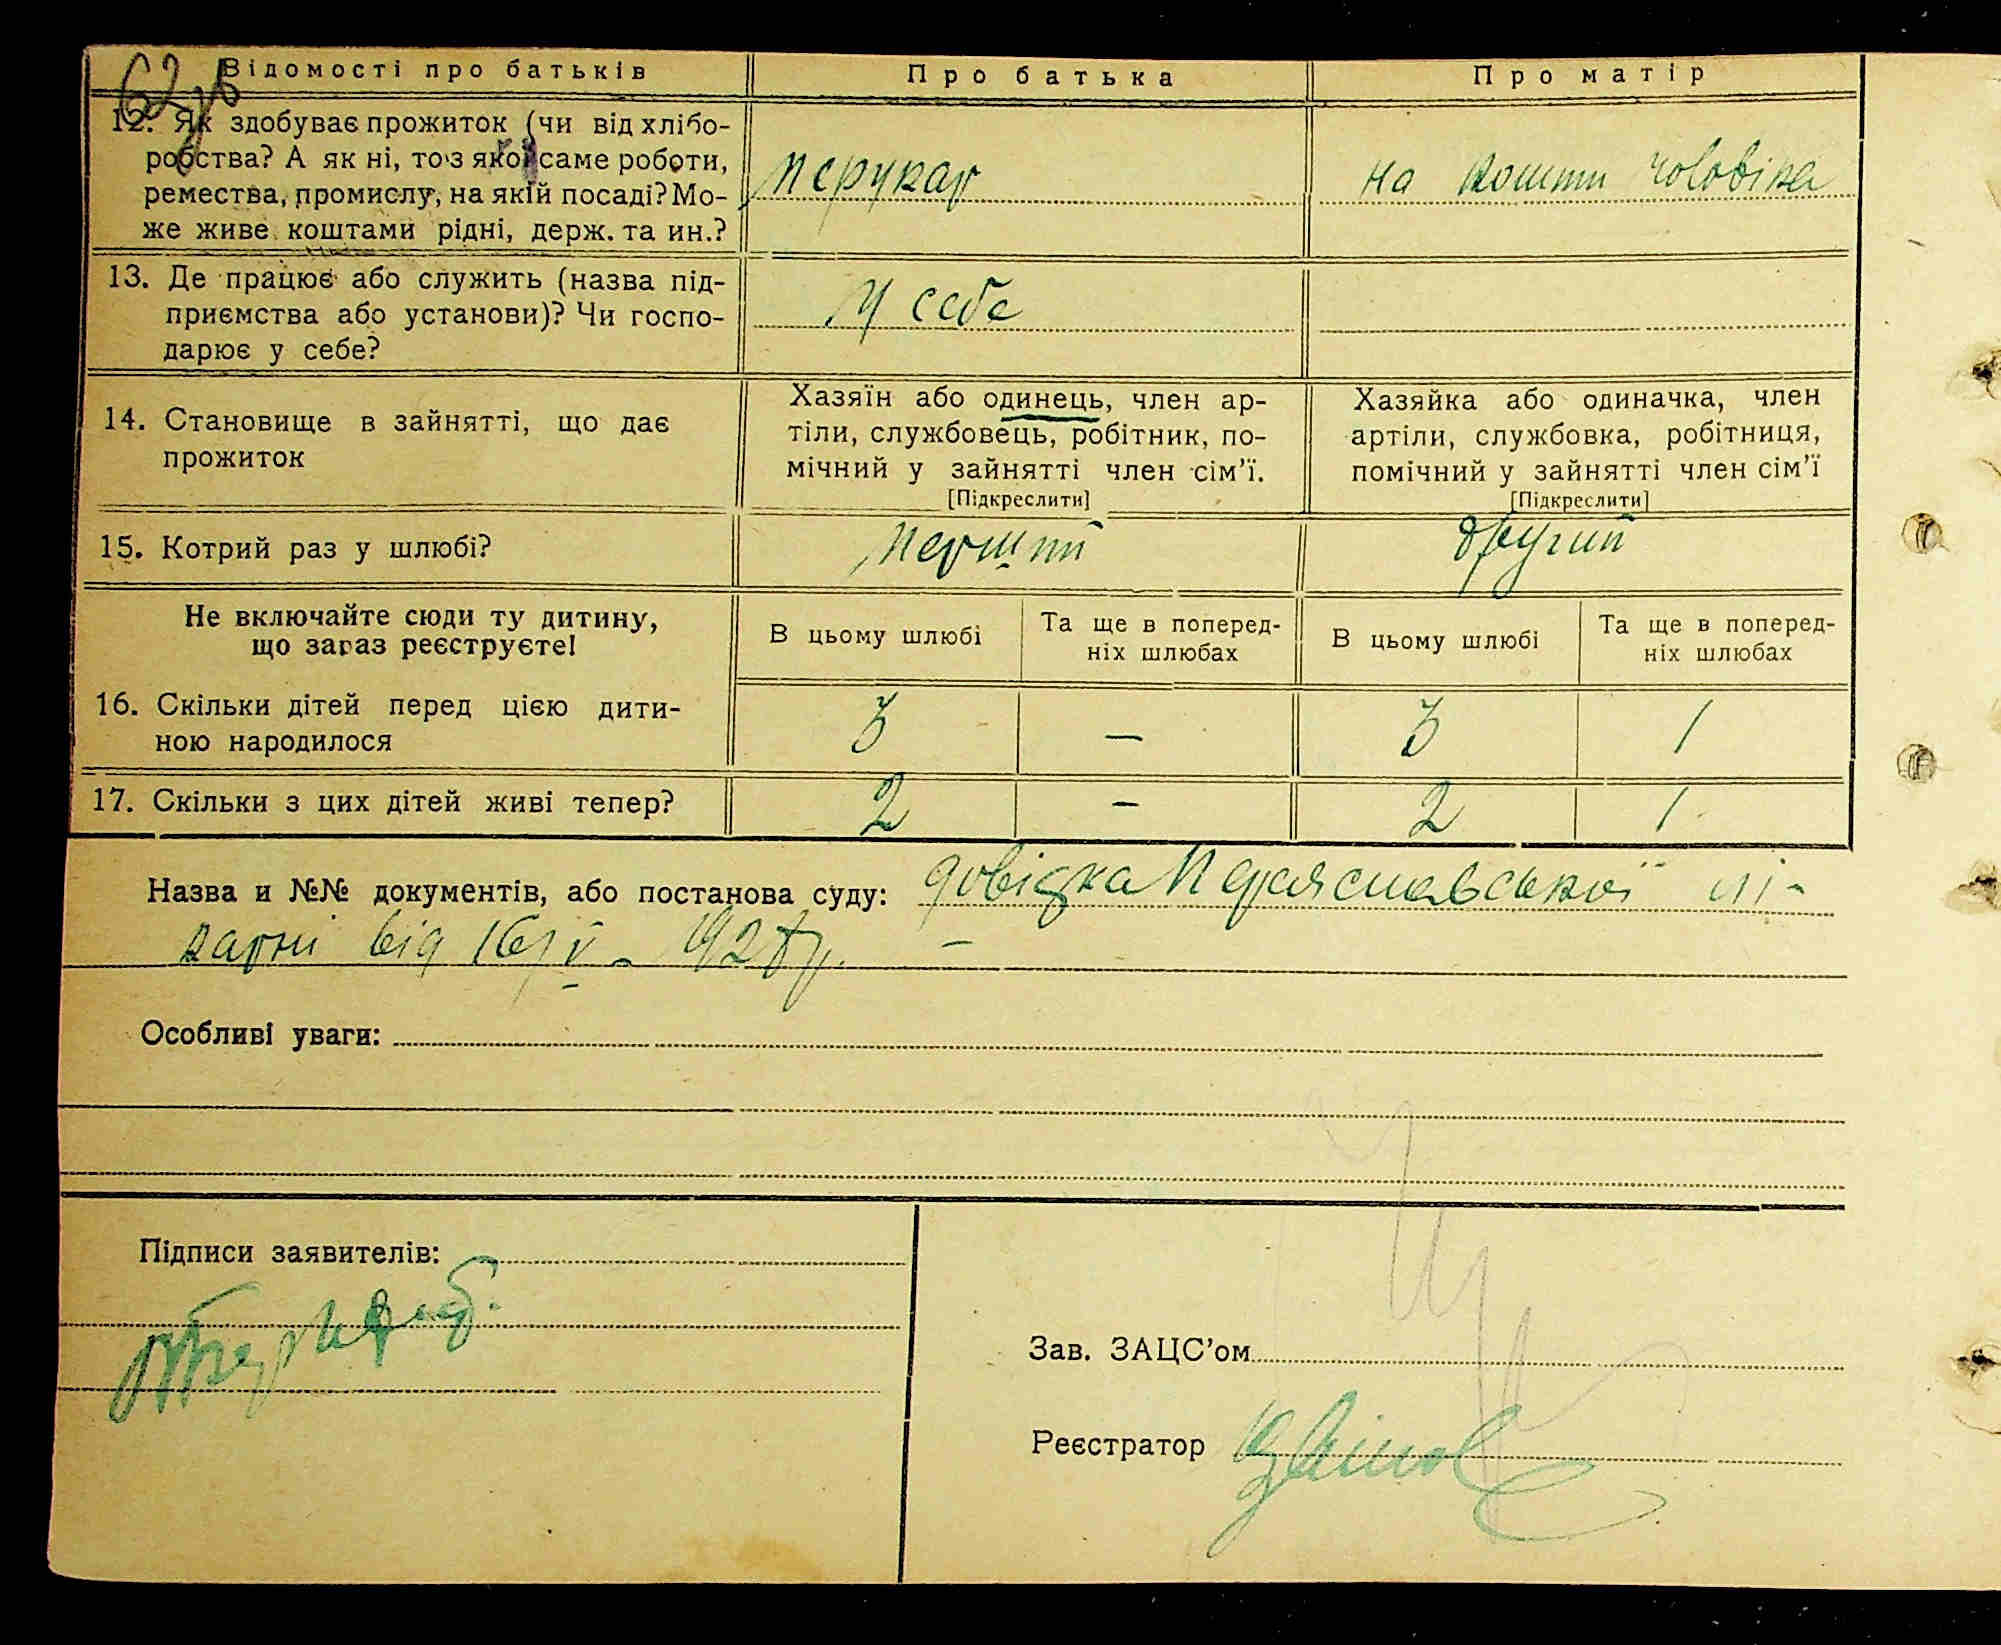 Відомості про батьків
Про батька
Про матір
12. Як здобуває прожиток (чи від хлібо-
робства? А як ні, то з якої саме роботи,
ремества, промислу, на якій посаді? Мо-
же живе коштами рідні, держ. та ин.?
перукар
на кошти чоловіка
13. Де працює або служить (назва під-
приємства або установи)? Чи госпо-
дарює у себе?
У себе
14. Становище в зайнятті, що дає
прожиток
Хазяїн або одинець, член ар-
тіли, службовець, робітник, по-
мічний у зайнятті член сім'ї.
[Підкреслити]
Хазяйка або одиначка, член
артіли, службовка, робітниця,
помічний у зайнятті член сім'ї
[Підкреслити]
15. Котрий раз у шлюбі?
перший
другий
Не включайте сюди ту дитину,
що зараз реєструєте!
В цьому шлюбі
Та ще в поперед-
ніх шлюбах
В цьому шлюбі
Та ще в поперед-
ніх шлюбах
16. Скільки дітей перед цією дити-
ною народилося
3 — 3 1
17. Скільки з цих дітей живі тепер?
2 — 2 1
Назва и №№ документів, або постанова суду: довідка Переяславської лі-
карні від 16/V – 192 р. –
Особливі уваги:
Підписи заявителів:
Зав. ЗАЦС'ом
Реєстратор